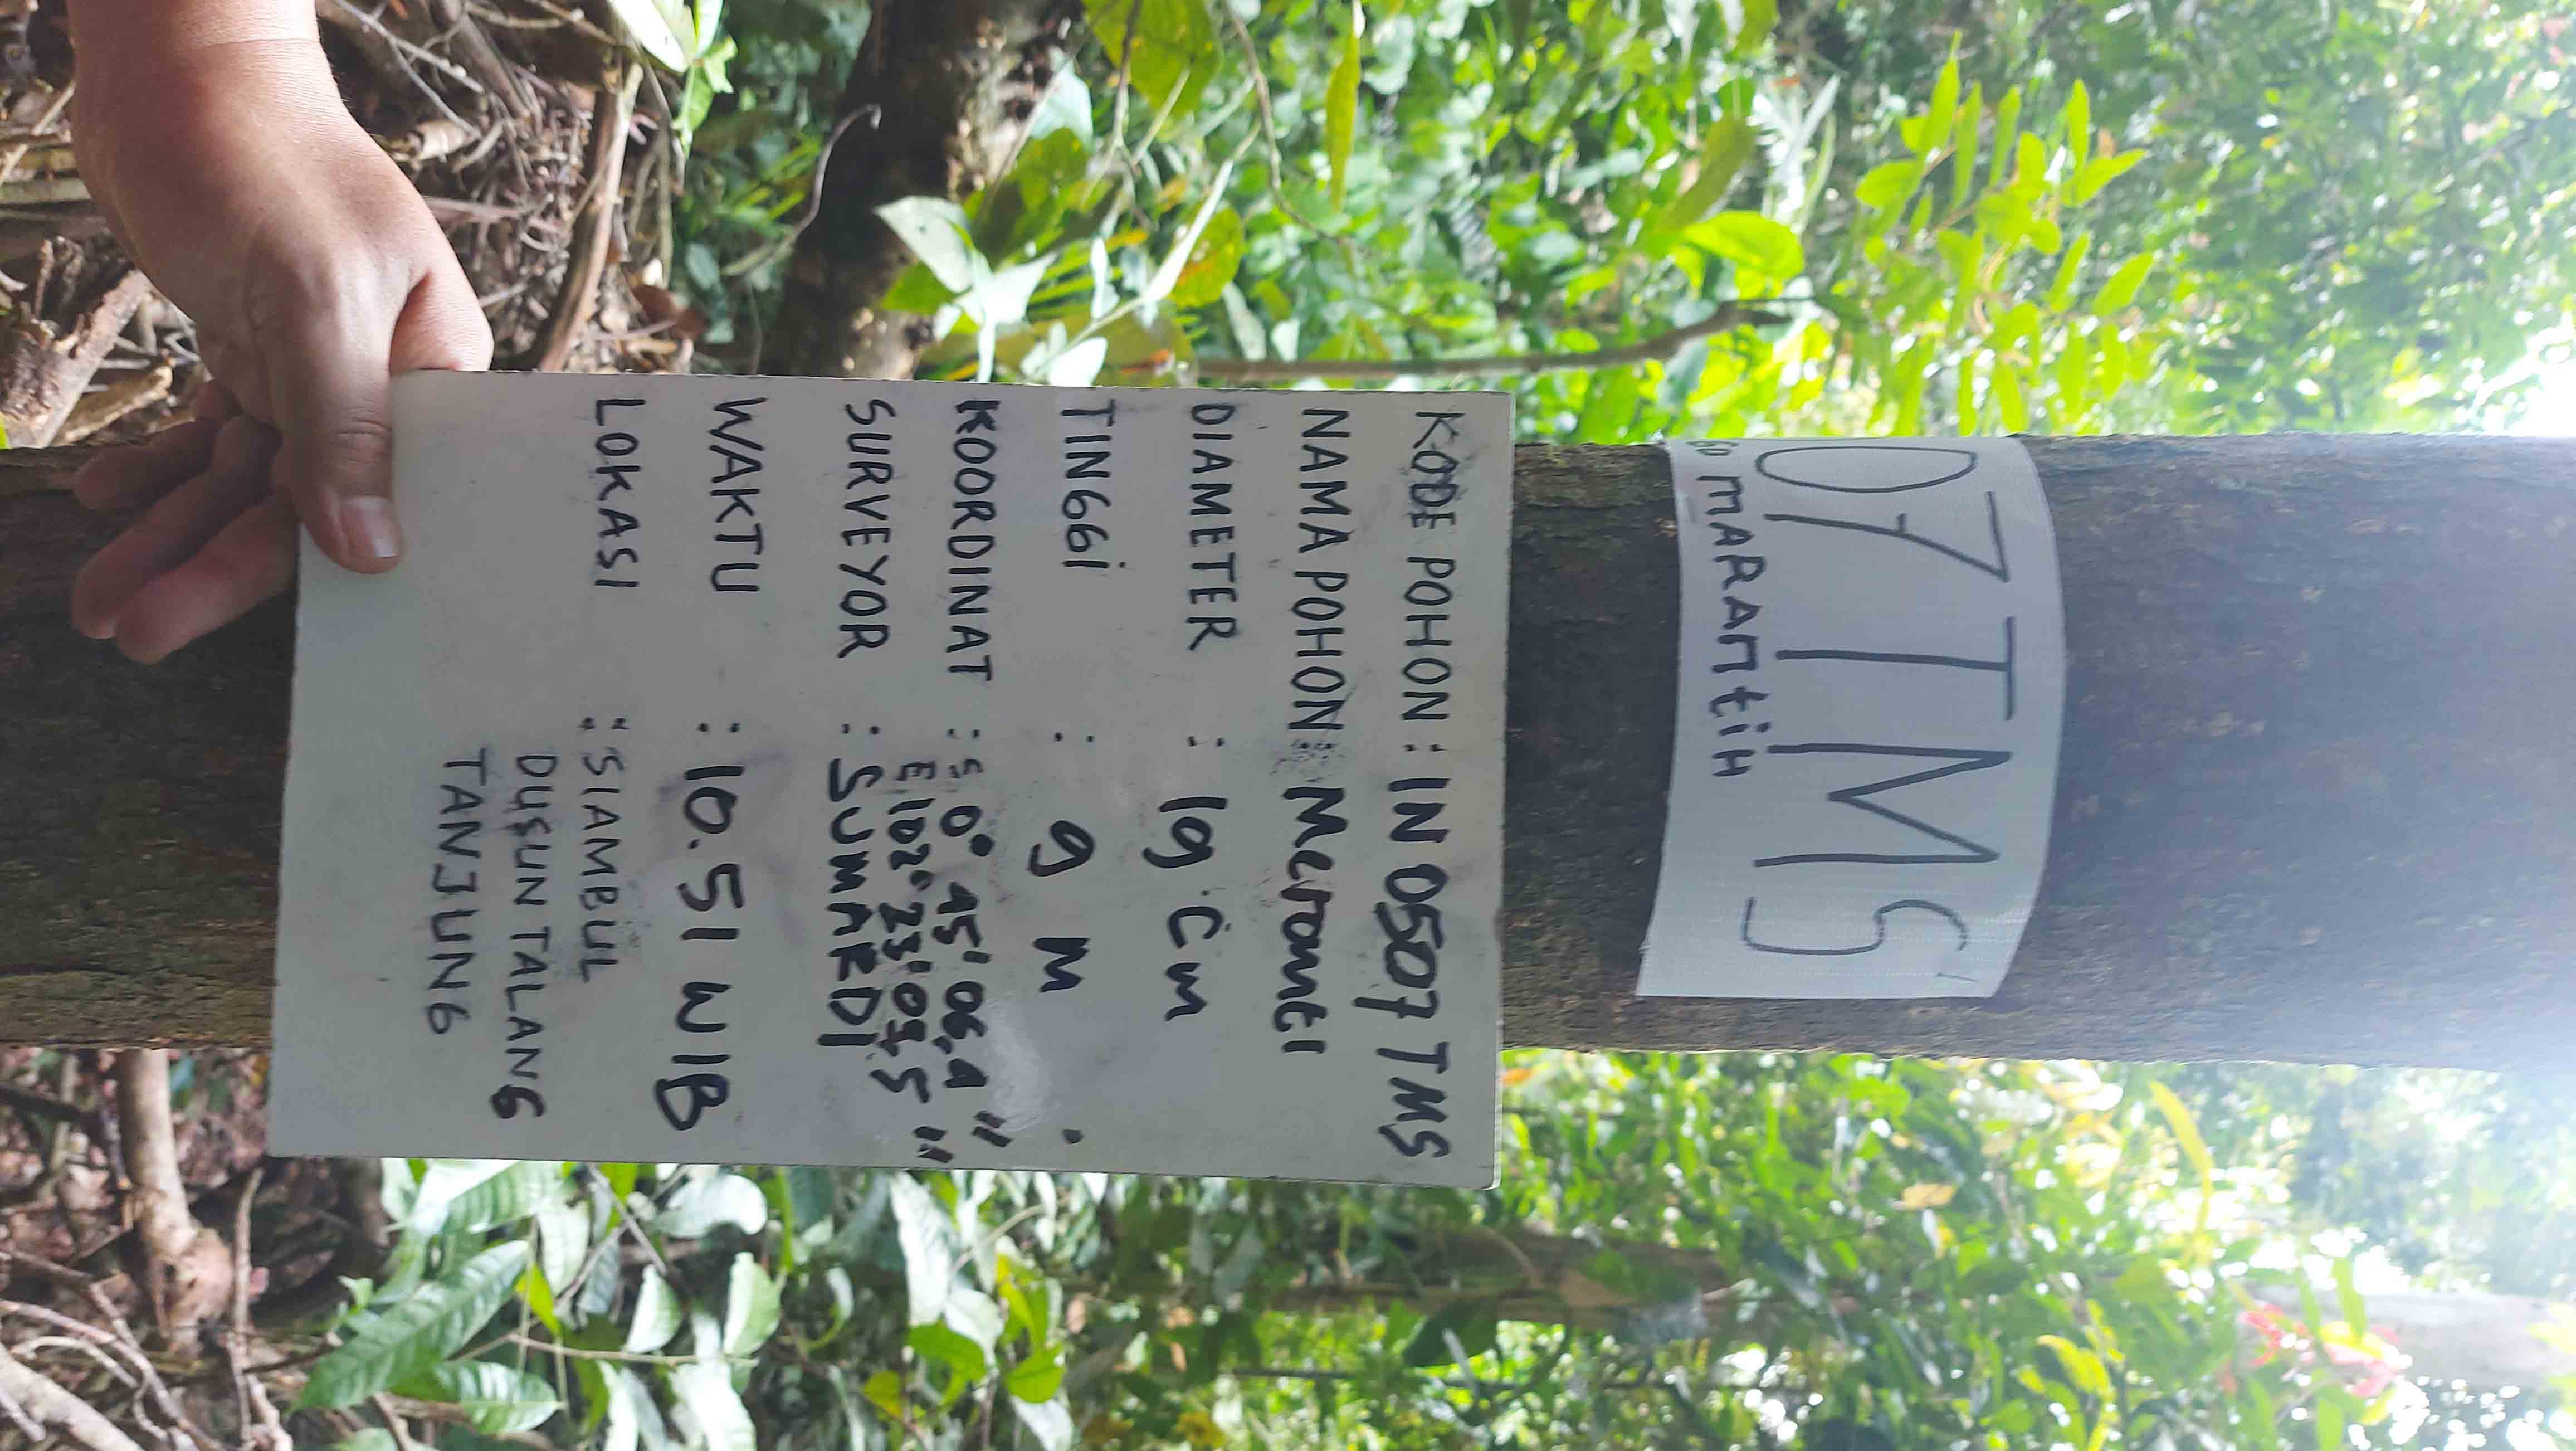 07TMS
MARANtiH
KODE POHON : IN 0507 TMS
NAMA POHON : Meranti
DIAMETER : 19 Cm
TINGGi : 9 m
KOORDINAT : S 0° 45' 06,4"
E 102° 23' 05,5"
SURVEYOR : SUMARDI
WAKTU : 10.51 WIB
LOKASI : SIAMBUL
DUSUN TALANG
TANJUNG